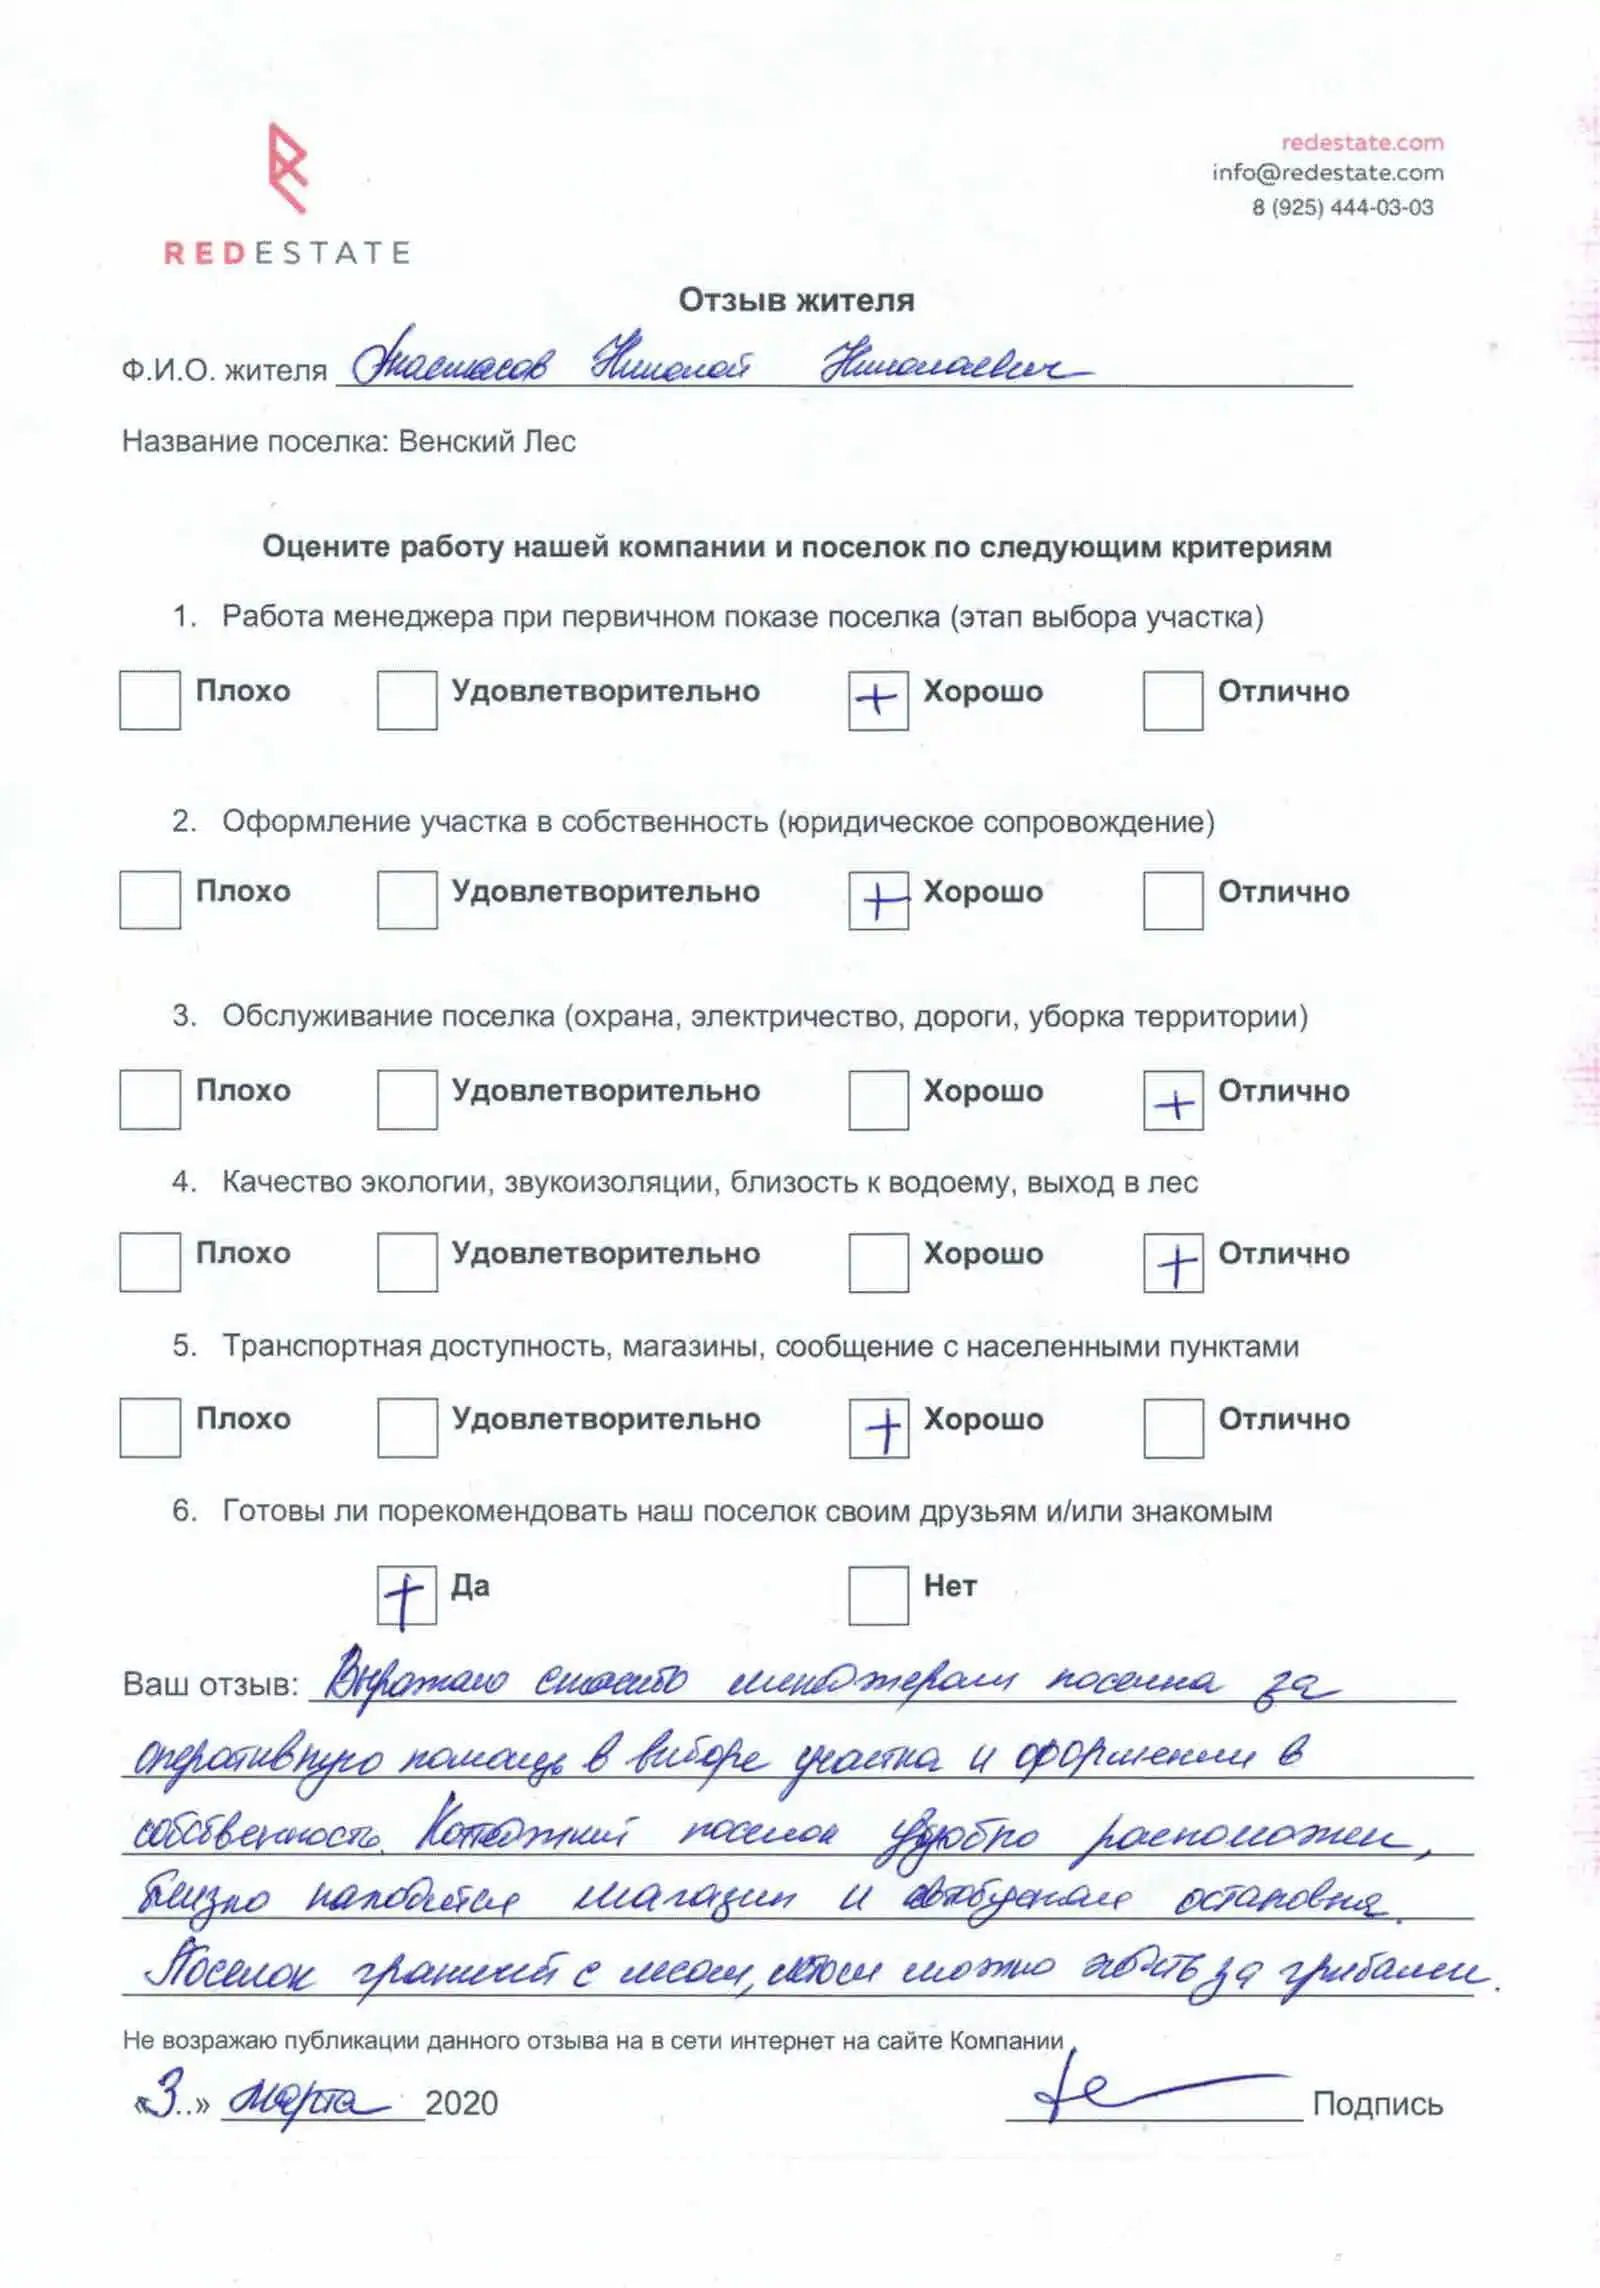 redestate.com
info@redestate.com
8 (925) 444-03-03
REDESTATE
Отзыв жителя
Ф.И.О. жителя Анастасов Николай Николаевич
Название поселка: Венский Лес
Оцените работу нашей компании и поселок по следующим критериям
1. Работа менеджера при первичном показе поселка (этап выбора участка)
Плохо Удовлетворительно + Хорошо Отлично
2. Оформление участка в собственность (юридическое сопровождение)
Плохо Удовлетворительно + Хорошо Отлично
3. Обслуживание поселка (охрана, электричество, дороги, уборка территории)
Плохо Удовлетворительно Хорошо + Отлично
4. Качество экологии, звукоизоляции, близость к водоему, выход в лес
Плохо Удовлетворительно Хорошо + Отлично
5. Транспортная доступность, магазины, сообщение с населенными пунктами
Плохо Удовлетворительно + Хорошо Отлично
6. Готовы ли порекомендовать наш поселок своим друзьям и/или знакомым
+ Да Нет
Ваш отзыв: Выражаю спасибо менеджерам поселка за
оперативную помощь в выборе участка и оформлении в
собственность. Котеджний поселок удобно расположен,
близко находится магазин и автобусная остановка.
Поселок граничит с лесом, можно ходить за грибами.
Не возражаю публикации данного отзыва на в сети интернет на сайте Компании
«3..» марта 2020
Подпись